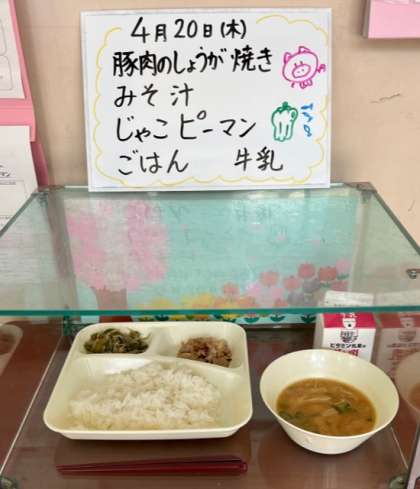 4月20日(木)
豚肉のしょうが焼き
みそ汁
じゃこピーマン
ごはん 牛乳